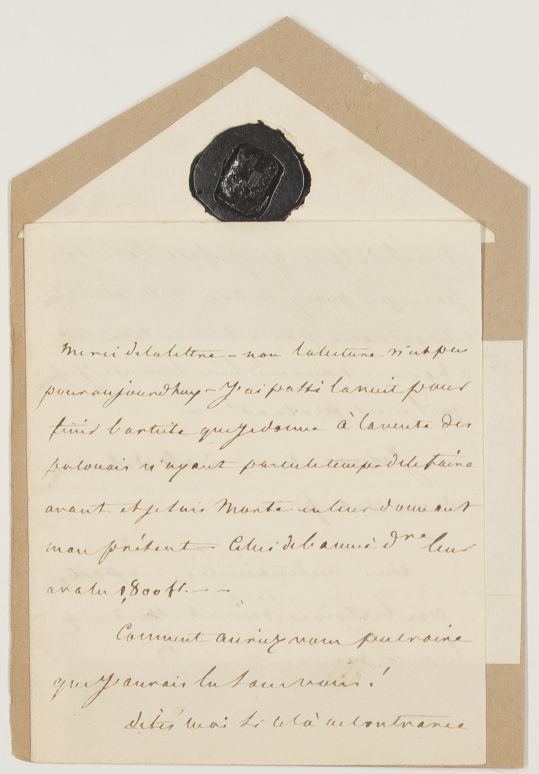 Merci de la lettre – non la lecture n'est pas
pour aujourdhuy – J'ai passé la nuit pour
finir l'article que je donne à la vente des
polonais n'ayant pas eu le temps de le faire
avant et je suis morte en leur donnant
mon présent – Celui de l'année dre leur
a valu 1,800 fr. –
Comment auriez vous pu croire
que J'aurais lu sans vous!
dites moi si cela a contrarié